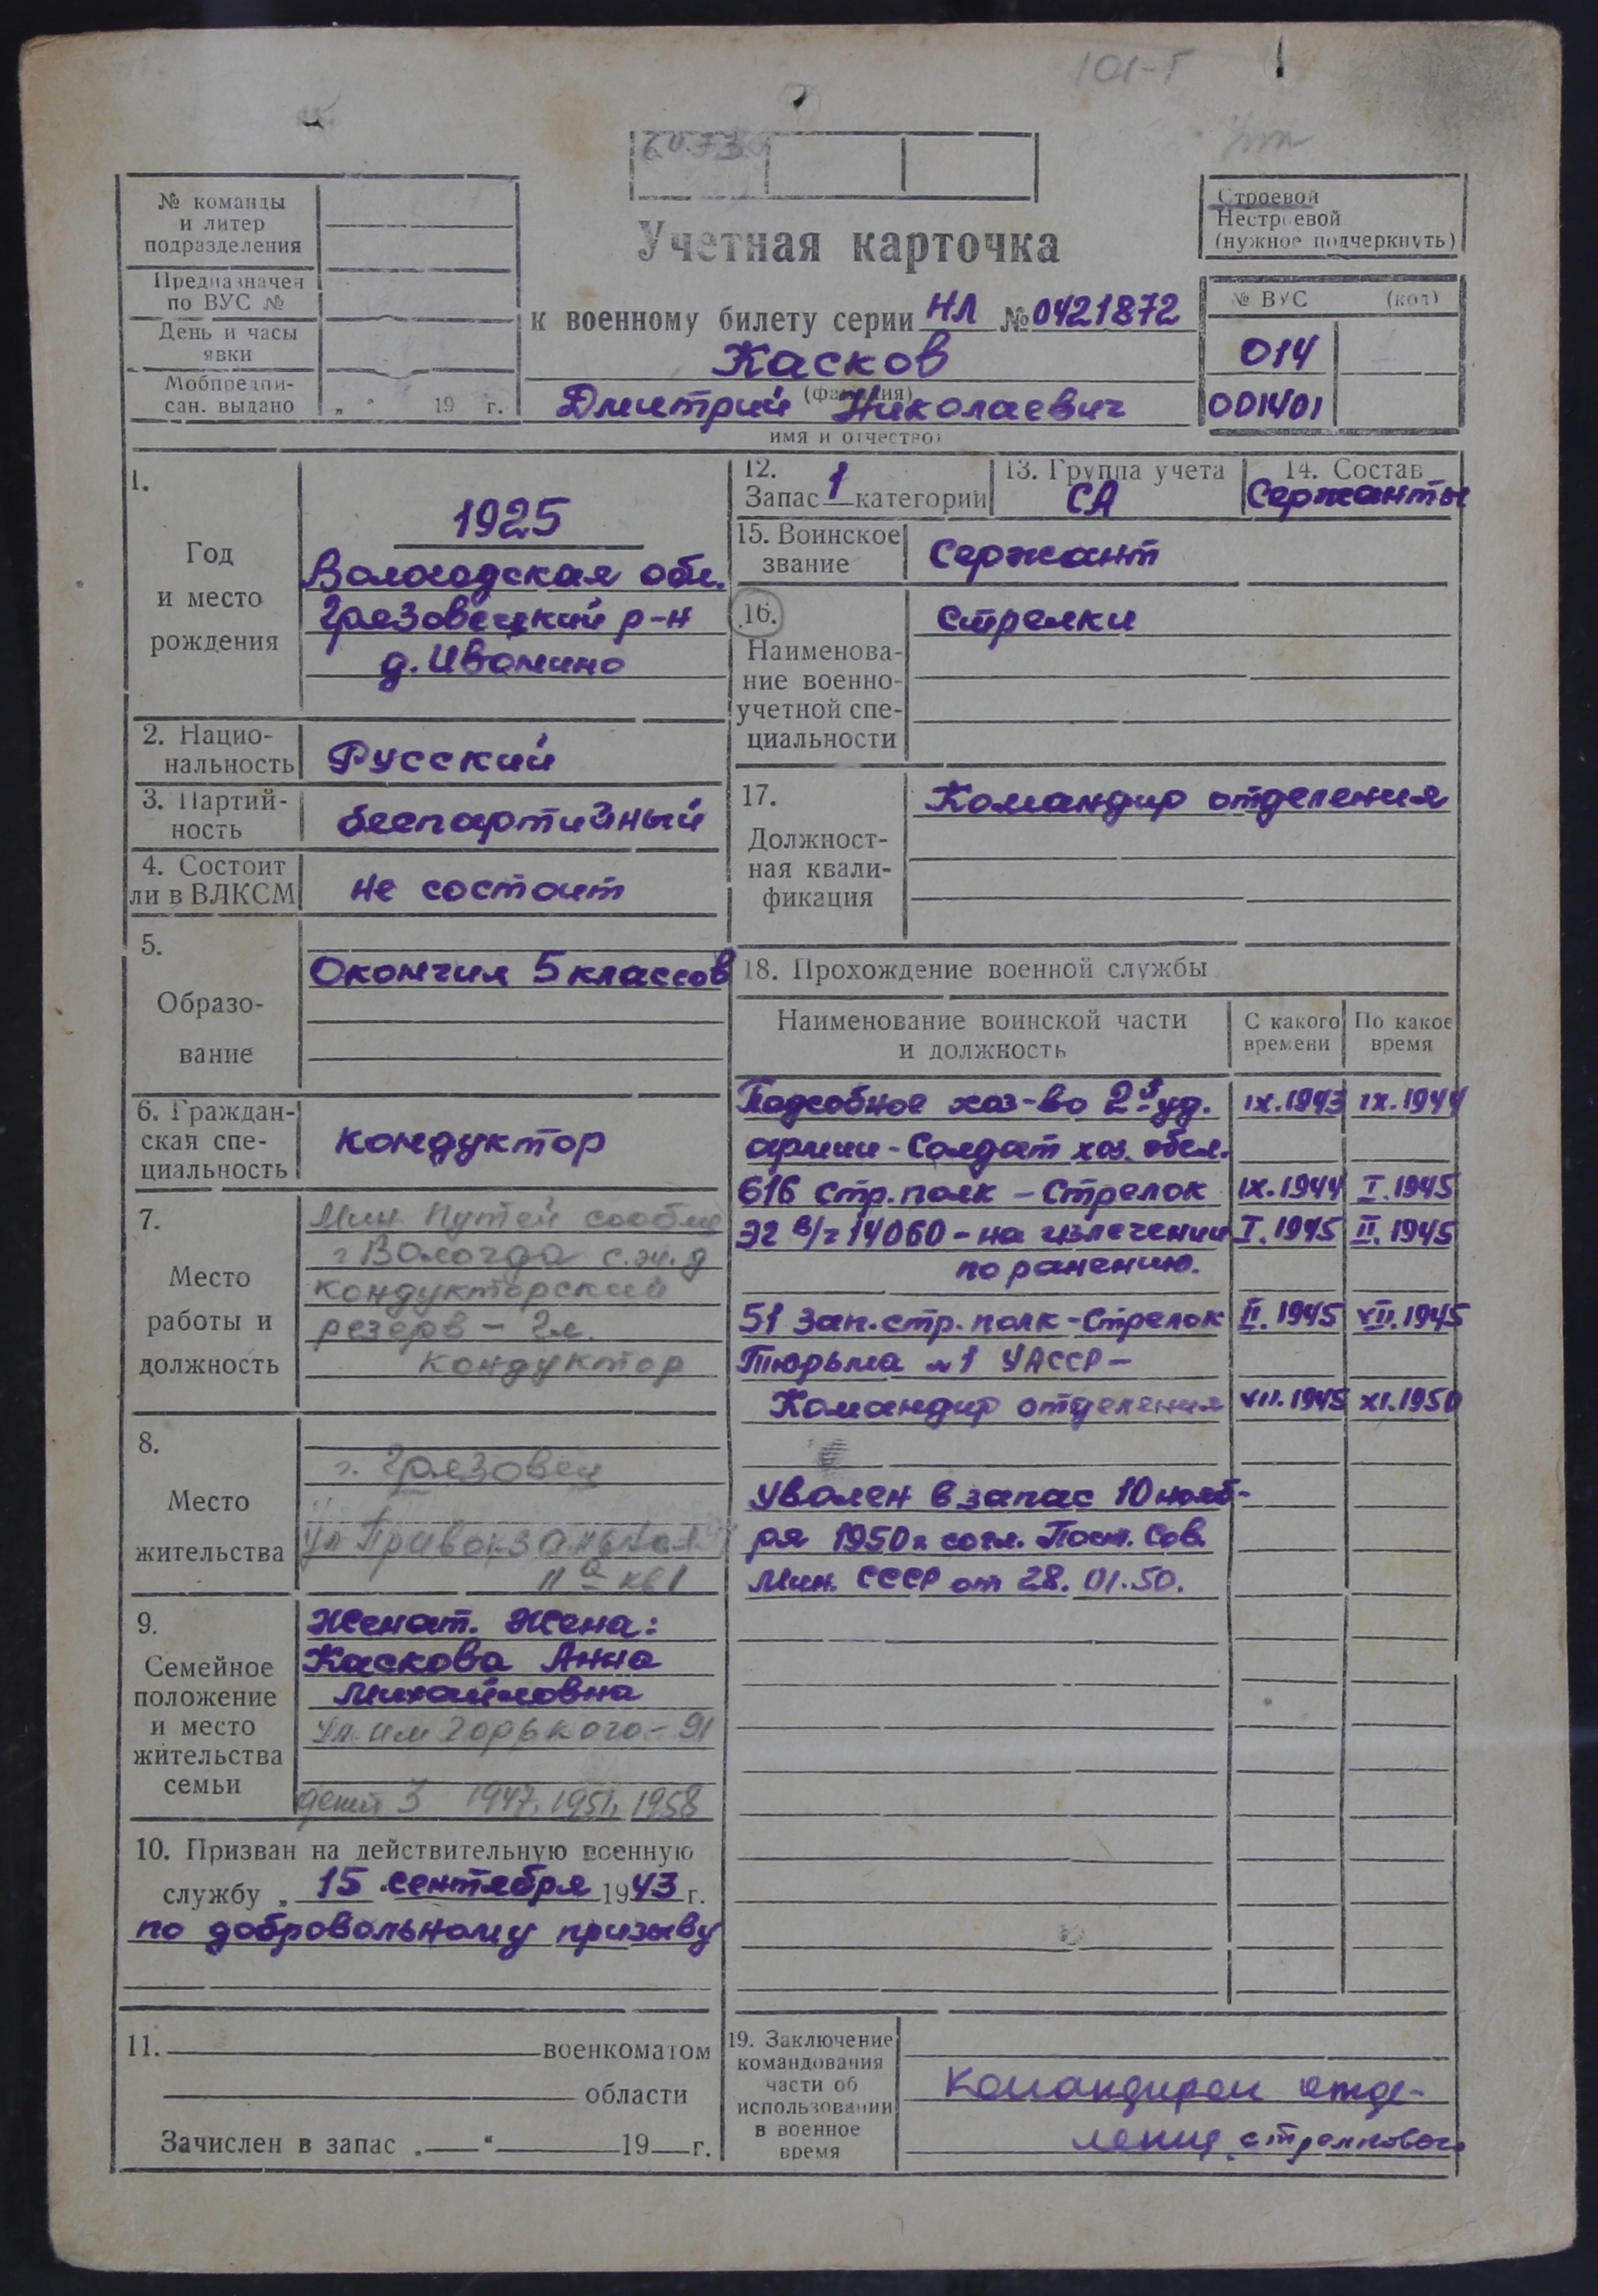 101-Т
№ команды
и литер
подразделения
Предназначен
по ВУС №
День и часы
явки
Мобпредпи-
сан. выдано „ " 19 г.
Учетная карточка
к военному билету серии НЛ № 0421872
Касков
(фамилия)
Дмитрий Николаевич
имя и отчество)
Строевой
Нестроевой
(нужное подчеркнуть)
№ ВУС (код)
014
001401
1.
Год
и место
рождения
1925
Вологодская обл.
Грязовецкий р-н
д. Ивонино
2. Нацио-
нальность
Русский
3. Партий-
ность
беспартийный
4. Состоит
ли в ВЛКСМ
не состоит
5.
Образо-
вание
Окончил 5 классов
6. Граждан-
ская спе-
циальность
кондуктор
7.
Место
работы и
должность
Мин. Путей сообще
г Вологда с.ж.д
кондукторский
резерв – Гл.
кондуктор
8.
Место
жительства
г. Грязовец
ул Привокзальная
11а кв 1
9.
Семейное
положение
и место
жительства
семьи
Женат. Жена:
Каскова Анна
Михайловна
ул. им Горького – 91
дети 3 1947, 1951, 1958
10. Призван на действительную военную
службу „ 15 " сентября 1943 г.
по добровольному призыву
11. военкоматом
области
Зачислен в запас „ " 19 г.
12.
Запас 1 категории
13. Группа учета
СА
14. Состав
Сержанты
15. Воинское
звание
Сержант
16.
Наименова-
ние военно-
учетной спе-
циальности
стрелки
17.
Должност-
ная квали-
фикация
Командир отделения
18. Прохождение военной службы
Наименование воинской части
и должность
С какого
времени
По какое
время
Подсобное хоз-во 2й уд. IX.1943 IX.1944
армии – Солдат хоз. обсл.
616 Стр. полк – Стрелок IX.1944 I.1945
ЭГ в/ч 14060 – на излечении I.1945 II.1945
по ранению.
51 Зап. стр. полк – Стрелок II.1945 VII.1945
Тюрьма №1 УАССР –
Командир отделения VII.1945 XI.1950
Уволен в запас 10 нояб-
ря 1950 г согл. Пост. Сов.
Мин. СССР от 28.01.50.
19. Заключение
командования
части об
использовании
в военное
время
Командиром отде-
ления стрелкового